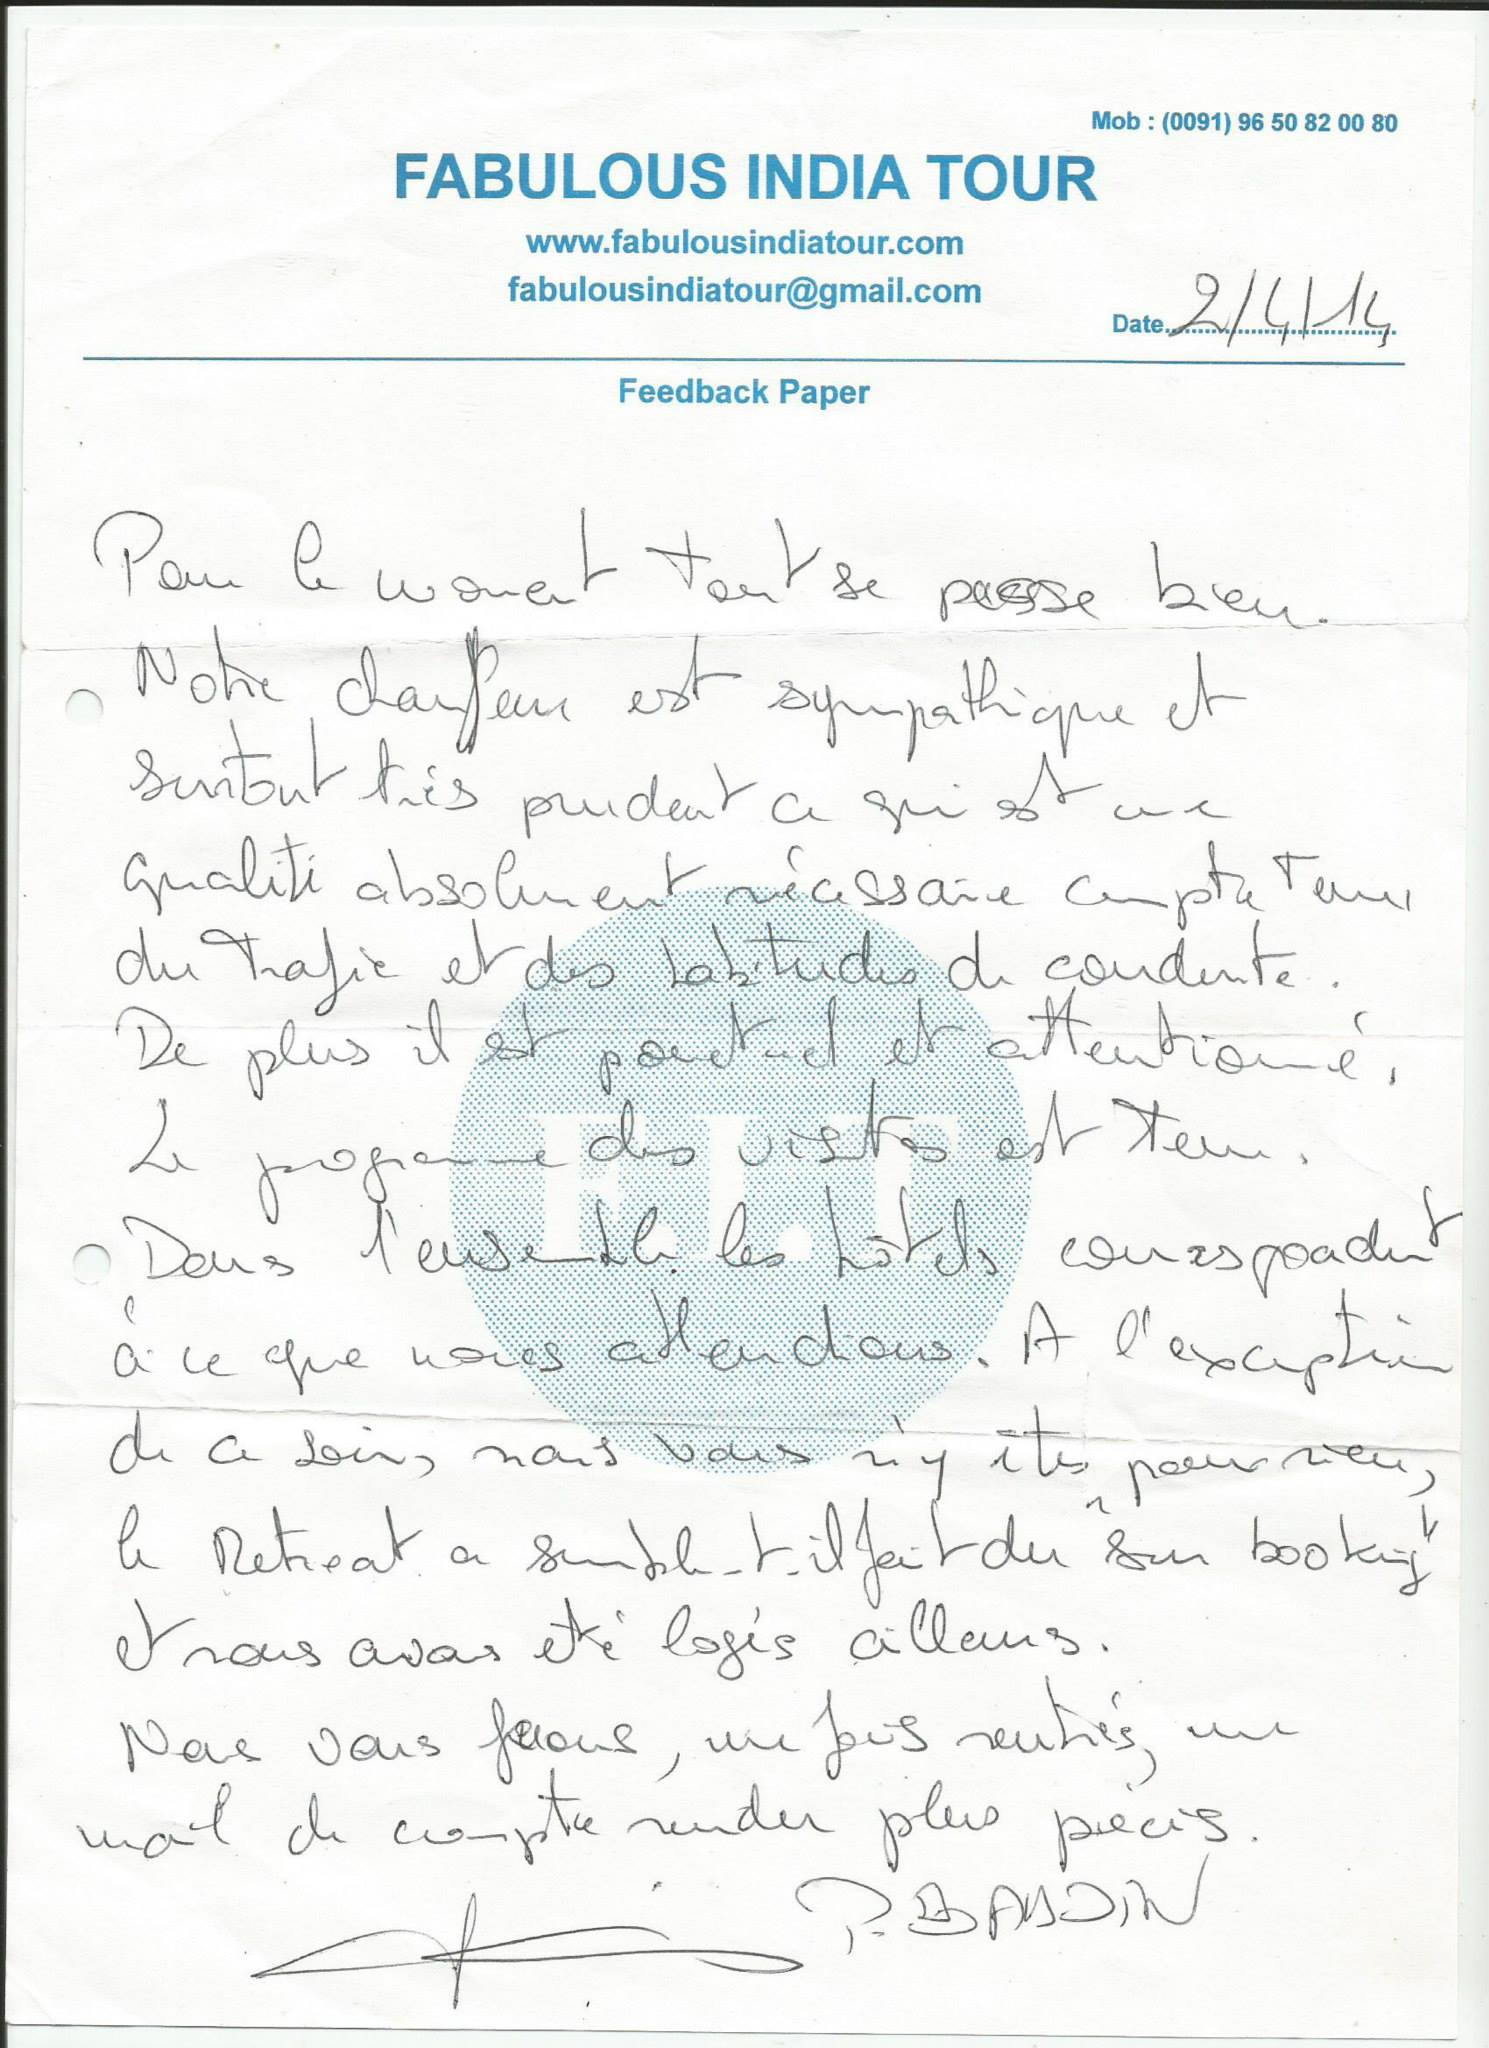 Mob : (0091) 96 50 82 00 80
FABULOUS INDIA TOUR
www.fabulousindiatour.com
fabulousindiatour@gmail.com
Date 2/4/14
Feedback Paper
Pour le moment tout se passe bien.
Notre chauffeur est sympathique et
surtout très prudent ce qui est une
qualité absolument nécessaire compte tenu
du trafic et des habitudes de conduite.
De plus il est ponctuel et attentionné.
Le programme des visites est tenu.
F.I.T
Dans l'ensemble les hôtels correspondent
à ce que nous attendions. A l'exception
de ce soir, mais vous n'y êtes pour rien,
le Retreat a semble-t-il fait du "sur booking"
et nous avons été logés ailleurs.
Nous vous ferons, une fois rentrés, un
mail de compte rendu plus précis.
P. BAUDIN